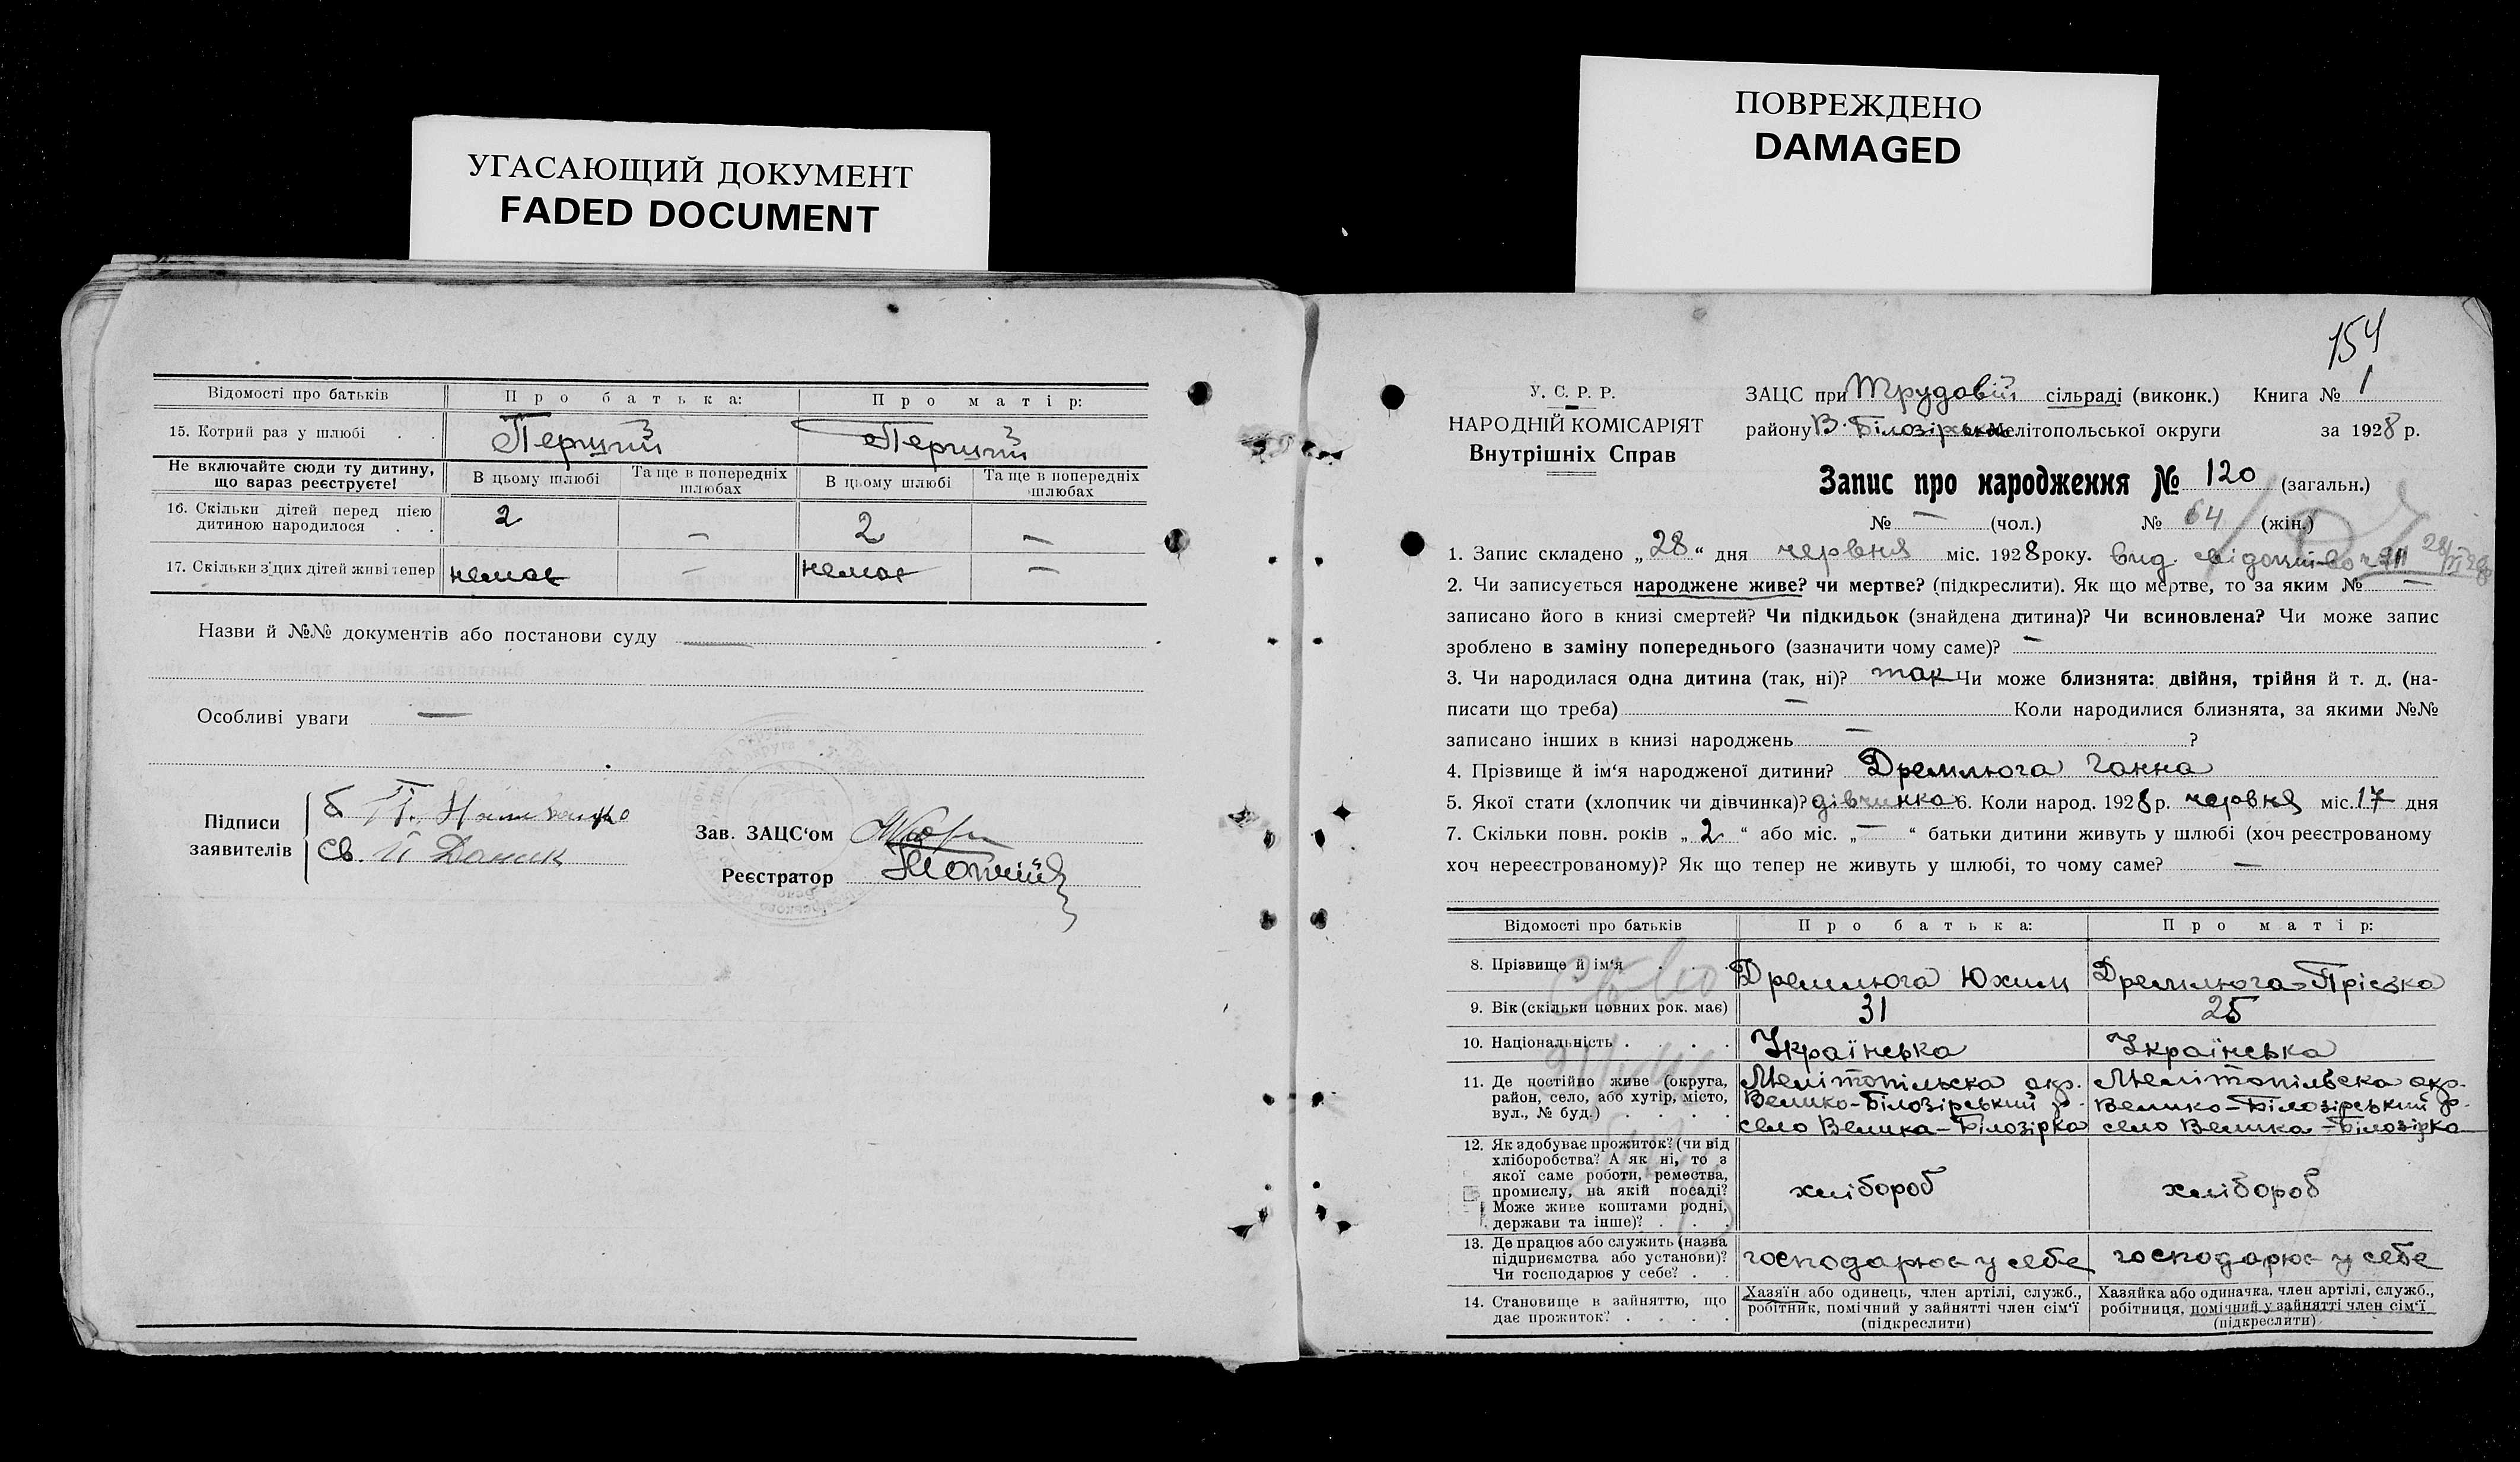 УГАСАЮЩИЙ ДОКУМЕНТ
FADED DOCUMENT
ПОВРЕЖДЕНО
DAMAGED
Відомості про батьків Про батька: Про матір:
15. Котрий раз у шлюбі . . Перший Перший
Не включайте сюди ту дитину, що вараз реєструєте! В цьому шлюбі Та ще в попередніх шлюбах В цьому шлюбі Та ще в попередніх шлюбах
16. Скільки дітей перед цією дитиною народилося . . 2 — 2 —
17. Скільки з цих дітей живі тепер немає — немає —
Назви й №№ документів або постанови суду —
Особливі уваги —
Підписи заявителів
б П.
св. й
Зав. ЗАЦС‘ом
Реєстратор
154
У. С. Р. Р.
НАРОДНІЙ КОМІСАРІЯТ
Внутрішніх Справ
ЗАЦС при Трудовій сільраді (виконк.) Книга № 1
району В. Білозірськ Мелітопольської округи за 1928 р.
Запис про народження № 120 (загальн.)
№ — (чол.) № 64 (жін.)
1. Запис складено „28“ дня червня міс. 1928 року. вид. свідоцтво
2. Чи записується народжене живе? чи мертве? (підкреслити). Як що мертве, то за яким № —
записано його в книзі смертей? Чи підкидьок (знайдена дитина)? Чи всиновлена? Чи може запис
зроблено в заміну попереднього (зазначити чому саме)? —
3. Чи народилася одна дитина (так, ні)? так Чи може близнята: двійня, трійня й т. д. (на-
писати що треба) — Коли народилися близнята, за якими №№
записано інших в книзі народжень — ?
4. Прізвище й ім‘я народженої дитини? Дремлюга Ганна
5. Якої стати (хлопчик чи дівчинка)? дівчинка 6. Коли народ. 1928 р. червня міс. 17 дня
7. Скільки повн. років „2“ або міс. „—“ батьки дитини живуть у шлюбі (хоч реєстрованому
хоч нереєстрованому)? Як що тепер не живуть у шлюбі, то чому саме? —
Відомості про батьків Про батька: Про матір:
8. Прізвище й ім‘я . . . Дремлюга Юхим Дремлюга Пріська
9. Вік (скільки повних рок. має) 31 25
10. Національність . . . . Українська Українська
11. Де постійно живе (округа, район, село, або хутір, місто, вул., № буд.) . . . . Мелітопільска окр. Велико-Білозірський р. село Велика-Білозірка Мелітопільська окр. Велико-Білозірський р. село Велика-Білозірка
12. Як здобуває прожиток? (чи від хліборобства? А як ні, то з якої саме роботи, ремества, промислу, на якій посаді? Може живе коштами родні, держави та інше)? . . . хлібороб хлібороб
13. Де працює або служить (назва підприємства або установи)? Чи господарює у себе? . . господарює у себе господарює у себе
14. Становище в зайняттю, що дає прожиток? . . . . Хазяїн або одинець, член артілі, служб., робітник, помічний у зайнятті член сім‘ї (підкреслити) Хазяйка або одиначка, член артілі, служб., робітниця, помічний у зайнятті член сім‘ї (підкреслити)